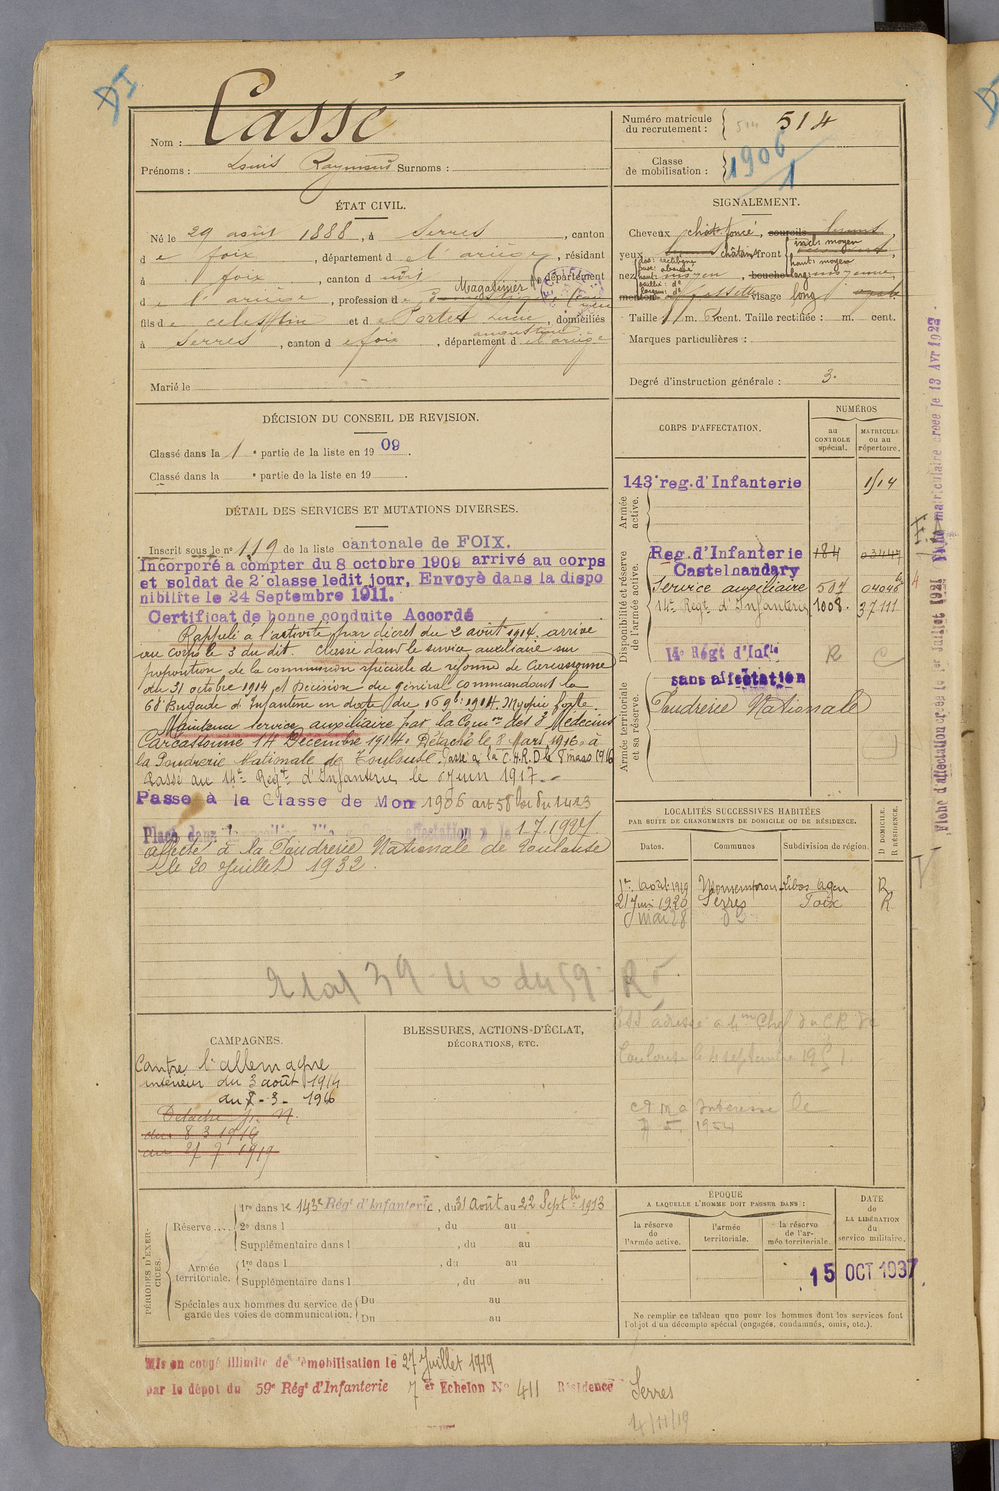 Cassé
Nom :
Prénoms : Louis Raymond Surnoms :
Numéro matricule du recrutement : 514 514
Classe de mobilisation : 1906
1
ÉTAT CIVIL.
Né le 29 août 1888, à Serres, canton
d e foix, département d e l'ariège, résidant
à foix, canton d udit Magasinier département
d e l'ariège, profession d e
fils d e celestin et d e Portet, domiciliés
à Serres, canton d e foix, département d e l'ariège
Marié le
SIGNALEMENT.
Cheveux chât. foncé, sourcils bruns,
yeux châtain front incl: moyen
haut: moyen
nez moyen, bouche larg: moyenne,
menton à fossette visage long
Taille 1 m. cent. Taille rectifiée : m. cent.
Marques particulières :
Degré d'instruction générale : 3.
DÉCISION DU CONSEIL DE REVISION.
Classé dans la 1 e partie de la liste en 19 09.
Classé dans la e partie de la liste en 19
DÉTAIL DES SERVICES ET MUTATIONS DIVERSES.
Inscrit sous le n° 119 de la liste cantonale de FOIX.
Incorporé a compter du 8 octobre 1909 arrivé au corps
et soldat de 2e classe ledit jour, Envoyé dans la dispo
nibilite le 24 Septembre 1911.
Certificat de bonne conduite Accordé
Rappelé à l'activité par décret du 2 août 1914. arrivé
au corps le 3 du dit. Classé dans le service auxiliaire sur
proposition de la commission spéciale de réforme de Carcassonne
du 31 octobre 1914 et Décision du général commandant la
68e Brigade d'Infanterie en date du 16 9bre 1914. Myopie forte
Maintenu service auxiliaire par la Comon des 3 Médecins
Carcassonne 14 Decembre 1914. Détaché le 8 Mars 1916 à
la Poudrerie Nationale de Toulouse. Passé à la C.H.R. D le 8 mars 1916
Passé au 14e Regt d'Infanterie le 6 juin 1917.
Passe à la Classe de Mon 1906 art 58 loi du 1-4-23
Placé dans la position dite sans affectation le 1.7.1927
affecté à la Poudrerie Nationale de Toulouse
le 20 Juillet 1932.
CORPS D'AFFECTATION.
NUMÉROS
au contrôle spécial.
matricule ou au répertoire.
Armée active.
143e reg. d'Infanterie
Disponibilité et réserve de l'armée active.
Reg. d'Infanterie 184 03447
Castelnaudary
Service auxiliaire 507 04046
14e Regt d'Infanterie 1008. 37111
14e Régt d'Infie R C
Armée territoriale et sa réserve.
sans affectation
Poudrerie Nationale
LOCALITÉS SUCCESSIVES HABITÉES
PAR SUITE DE CHANGEMENTS DE DOMICILE OU DE RÉSIDENCE.
Dates. Communes Subdivision de région. D DOMICILE. R RÉSIDENCE.
1er Août 1919 Monsempron Libos Agen R
21 Juin 1920 Serres Foix R
mai 28 do
CAMPAGNES.
Contre l'allemagne
intérieur du 3 août 1914
Détaché
du 8 3 1916
au 27 7 1919
BLESSURES, ACTIONS D'ÉCLAT,
DÉCORATIONS, ETC.
PÉRIODES D'EXERCICES.
Réserve
1re dans le 143e Régt d'Infanterie, du 31 Août au 22 Septbre 1913
2e dans l , du au
Supplémentaire dans l , du au
Armée territoriale.
1re dans l , du au
Supplémentaire dans l , du au
Spéciales aux hommes du service de garde des voies de communication.
Du au
Du au
ÉPOQUE
A LAQUELLE L'HOMME DOIT PASSER DANS :
la réserve de l'armée active.
l'armée territoriale.
la réserve de l'armée territoriale.
DATE DE LA LIBÉRATION du service militaire.
15 OCT 1937
Ne remplir ce tableau que pour les hommes dont les services font
l'objet d'un décompte spécial (engagés, condamnés, omis, etc.).
Mis en congé illimité de démobilisation le 27 Juillet 1919
par le dépot du 59e Régt d'Infanterie 7 er Echelon No 411 Résidence Serres
14/11/19